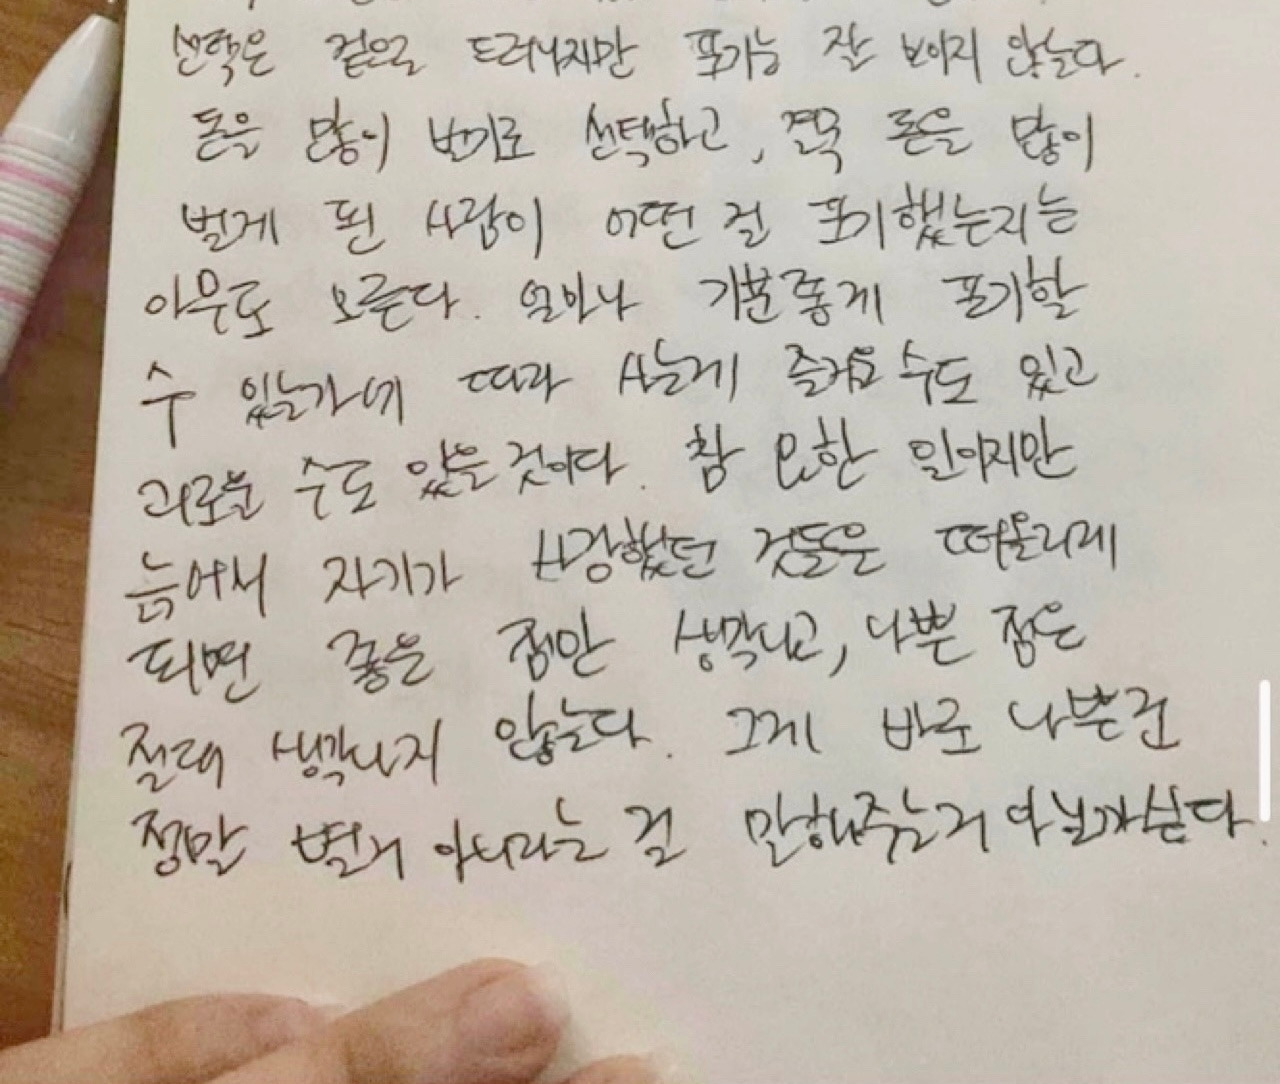 선택은 겉으로 드러나지만 포기는 잘 보이지 않는다.
돈을 많이 벌기로 선택하고, 결국 돈을 많이
벌게 된 사람이 어떤 걸 포기했는지는
아무도 모른다. 얼마나 기분좋게 포기할
수 있는가에 따라 사는게 즐거울 수도 있고
괴로울 수도 있을 것이다. 참 묘한 일이지만
늙어서 자기가 사랑했던 것들은 떠올리게
되면 좋은 점만 생각나고, 나쁜 점은
절대 생각나지 않는다. 그게 바로 나쁜건
정말 별거 아니라는 걸 말해주는거 아닐까싶다.